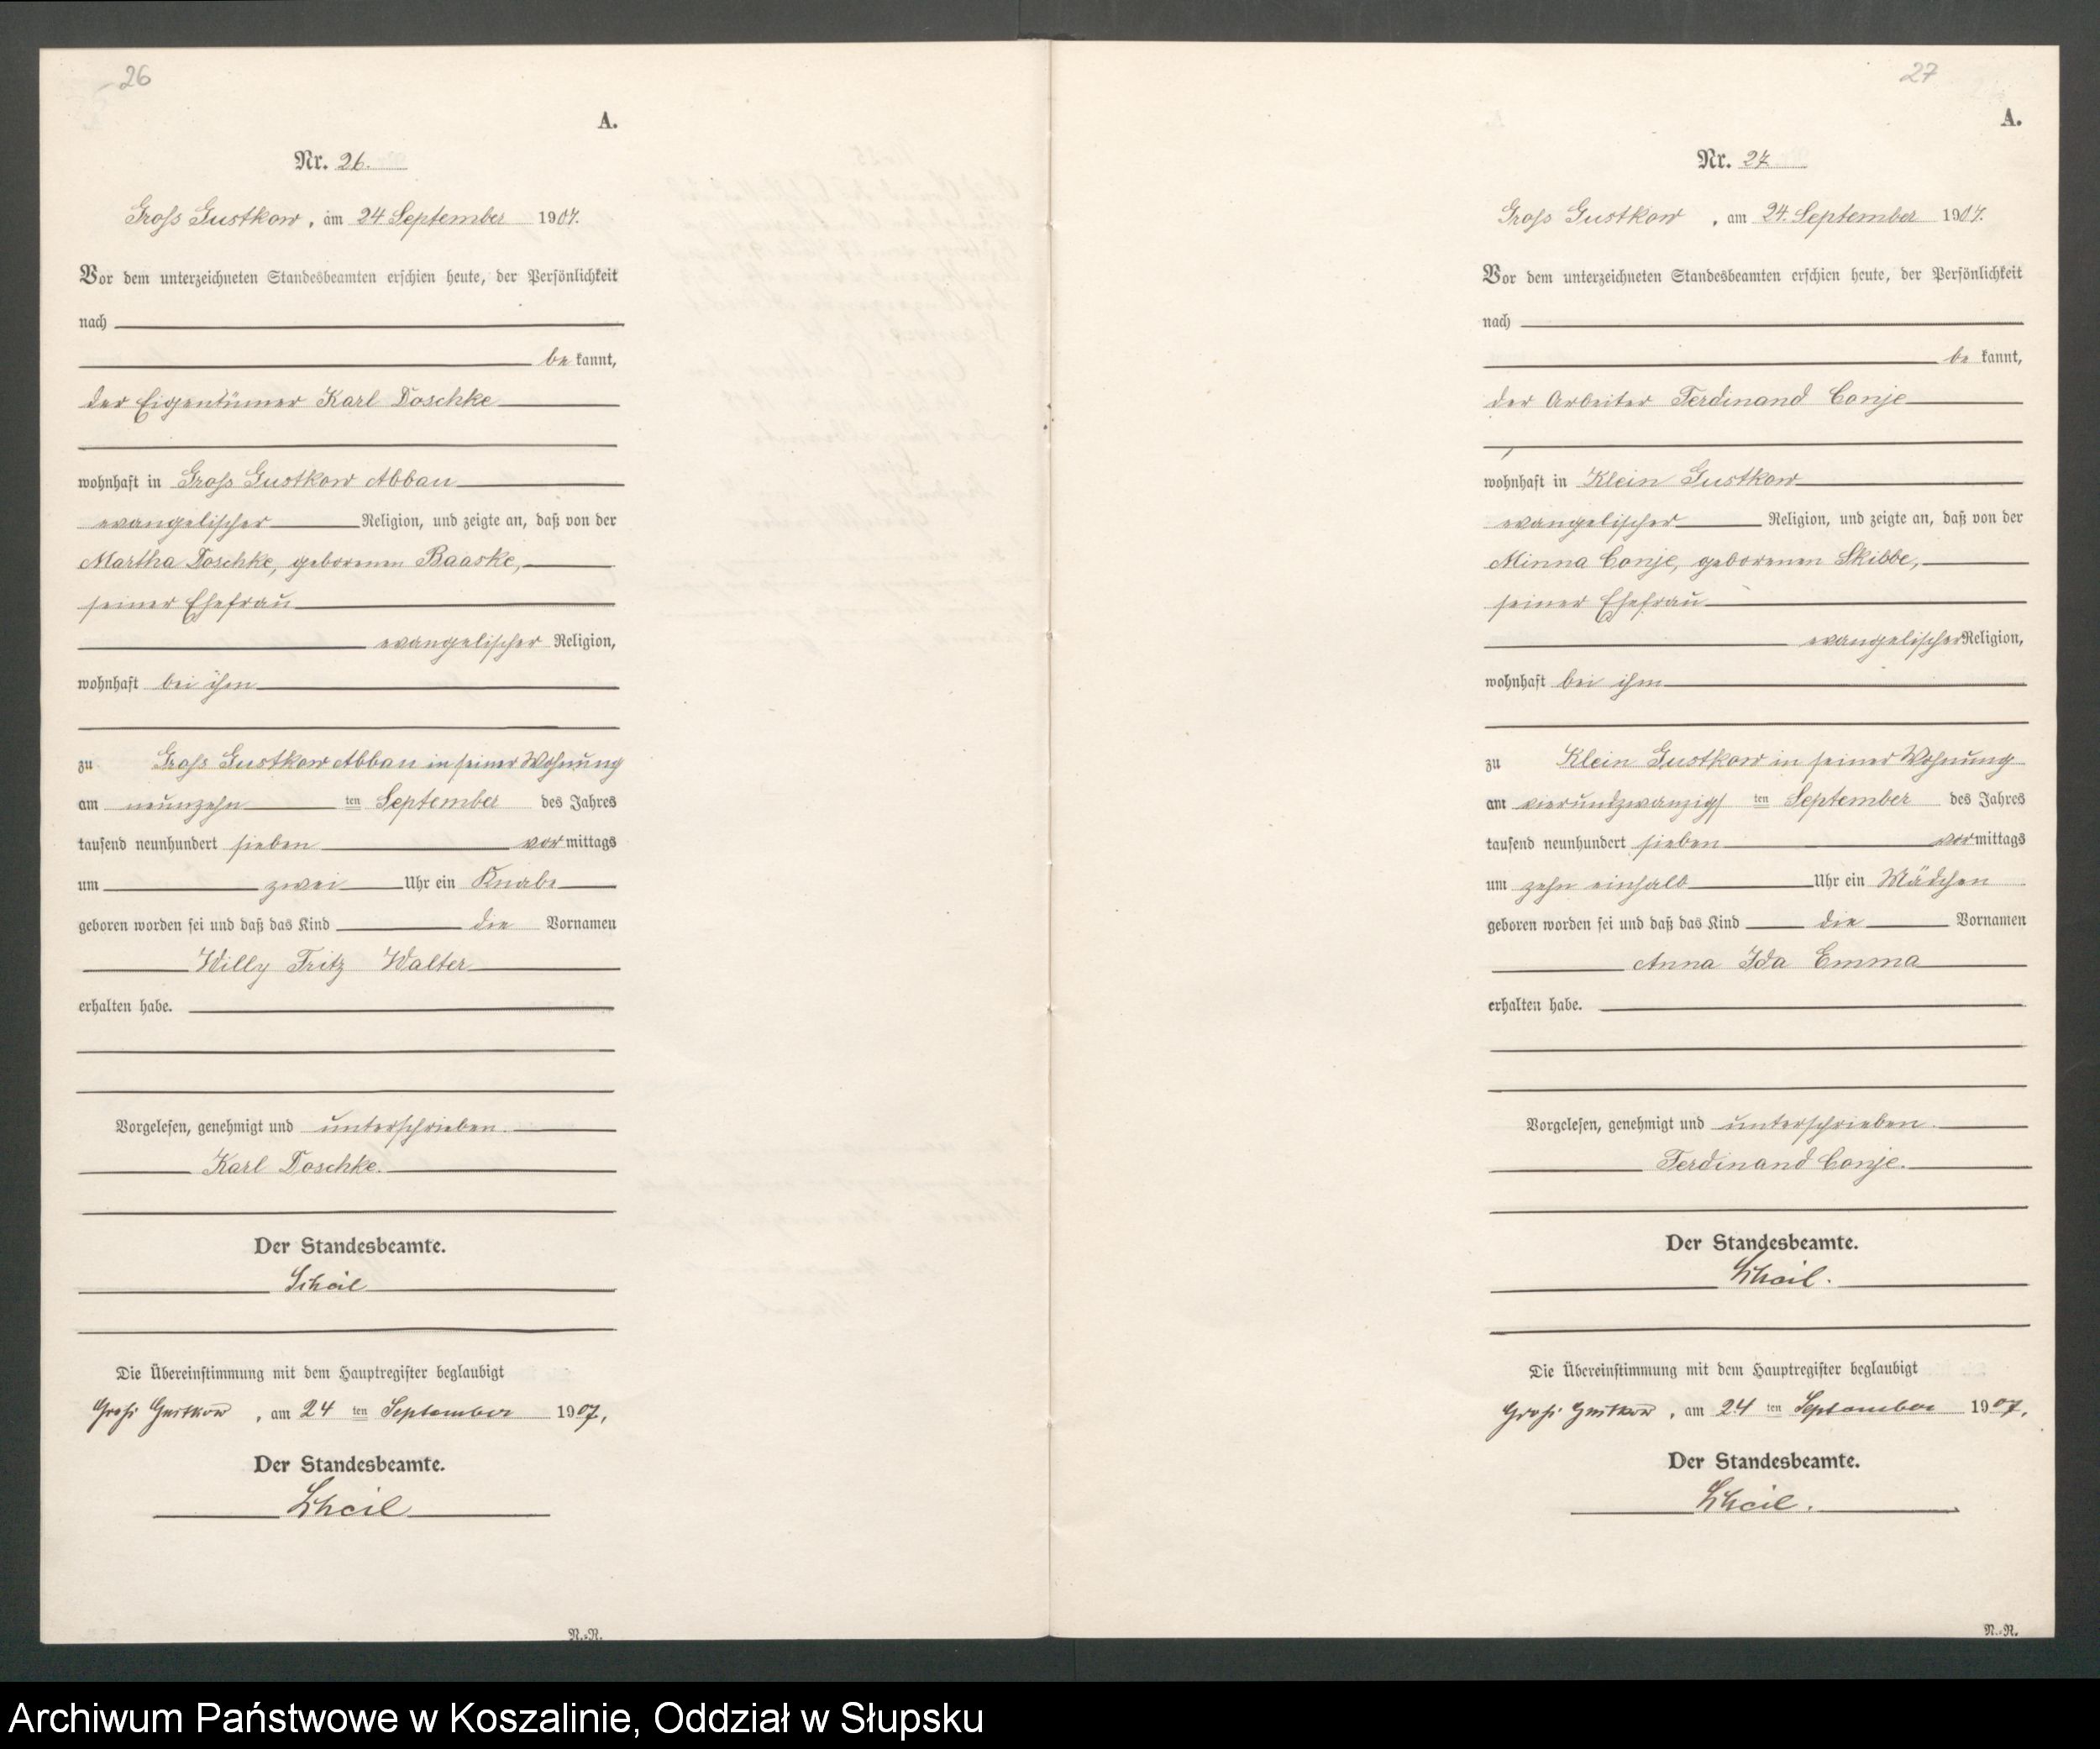 26
A.
Nr. 26.
Groß Gustkow, am 24 September 1907.
Vor dem unterzeichneten Standesbeamten erschien heute, der Persönlichkeit
nach
be kannt,
der Eigentümer Karl Doschke
wohnhaft in Groß Gustkow Abbau
evangelischer Religion, und zeigte an, daß von der
Martha Doschke, geborenen Baaske,
seiner Ehefrau
evangelischer Religion,
wohnhaft bei ihm
zu Groß Gustkow Abbau in seiner Wohnung
am neunzehn ten September des Jahres
tausend neunhundert sieben vormittags
um zwei Uhr ein Knabe
geboren worden sei und daß das Kind die Vornamen
Willy Fritz Walter
erhalten habe.
Vorgelesen, genehmigt und unterschrieben.
Karl Doschke.
Der Standesbeamte.
Die Übereinstimmung mit dem Hauptregister beglaubigt
Groß Gustkow, am 24 ten September 1907,
Der Standesbeamte.
N.-R.
27
A.
Nr. 27
Groß Gustkow, am 24. September 1907.
Vor dem unterzeichneten Standesbeamten erschien heute, der Persönlichkeit
nach
be kannt,
der Arbeiter Ferdinand Conje
wohnhaft in Klein Gustkow
evangelischer Religion, und zeigte an, daß von der
Minna Conje, geborenen Skibbe,
seiner Ehefrau
evangelischer Religion,
wohnhaft bei ihm
zu Klein Gustkow in seiner Wohnung
am vierundzwanzigs ten September des Jahres
tausend neunhundert sieben vormittags
um zehn einhalb Uhr ein Mädchen
geboren worden sei und daß das Kind die Vornamen
Anna Ida Emma
erhalten habe.
Vorgelesen, genehmigt und unterschrieben.
Ferdinand Conje.
Der Standesbeamte.
Die Übereinstimmung mit dem Hauptregister beglaubigt
Groß Gustkow, am 24 ten September 1907,
Der Standesbeamte.
N.-R.
Archiwum Państwowe w Koszalinie, Oddział w Słupsku